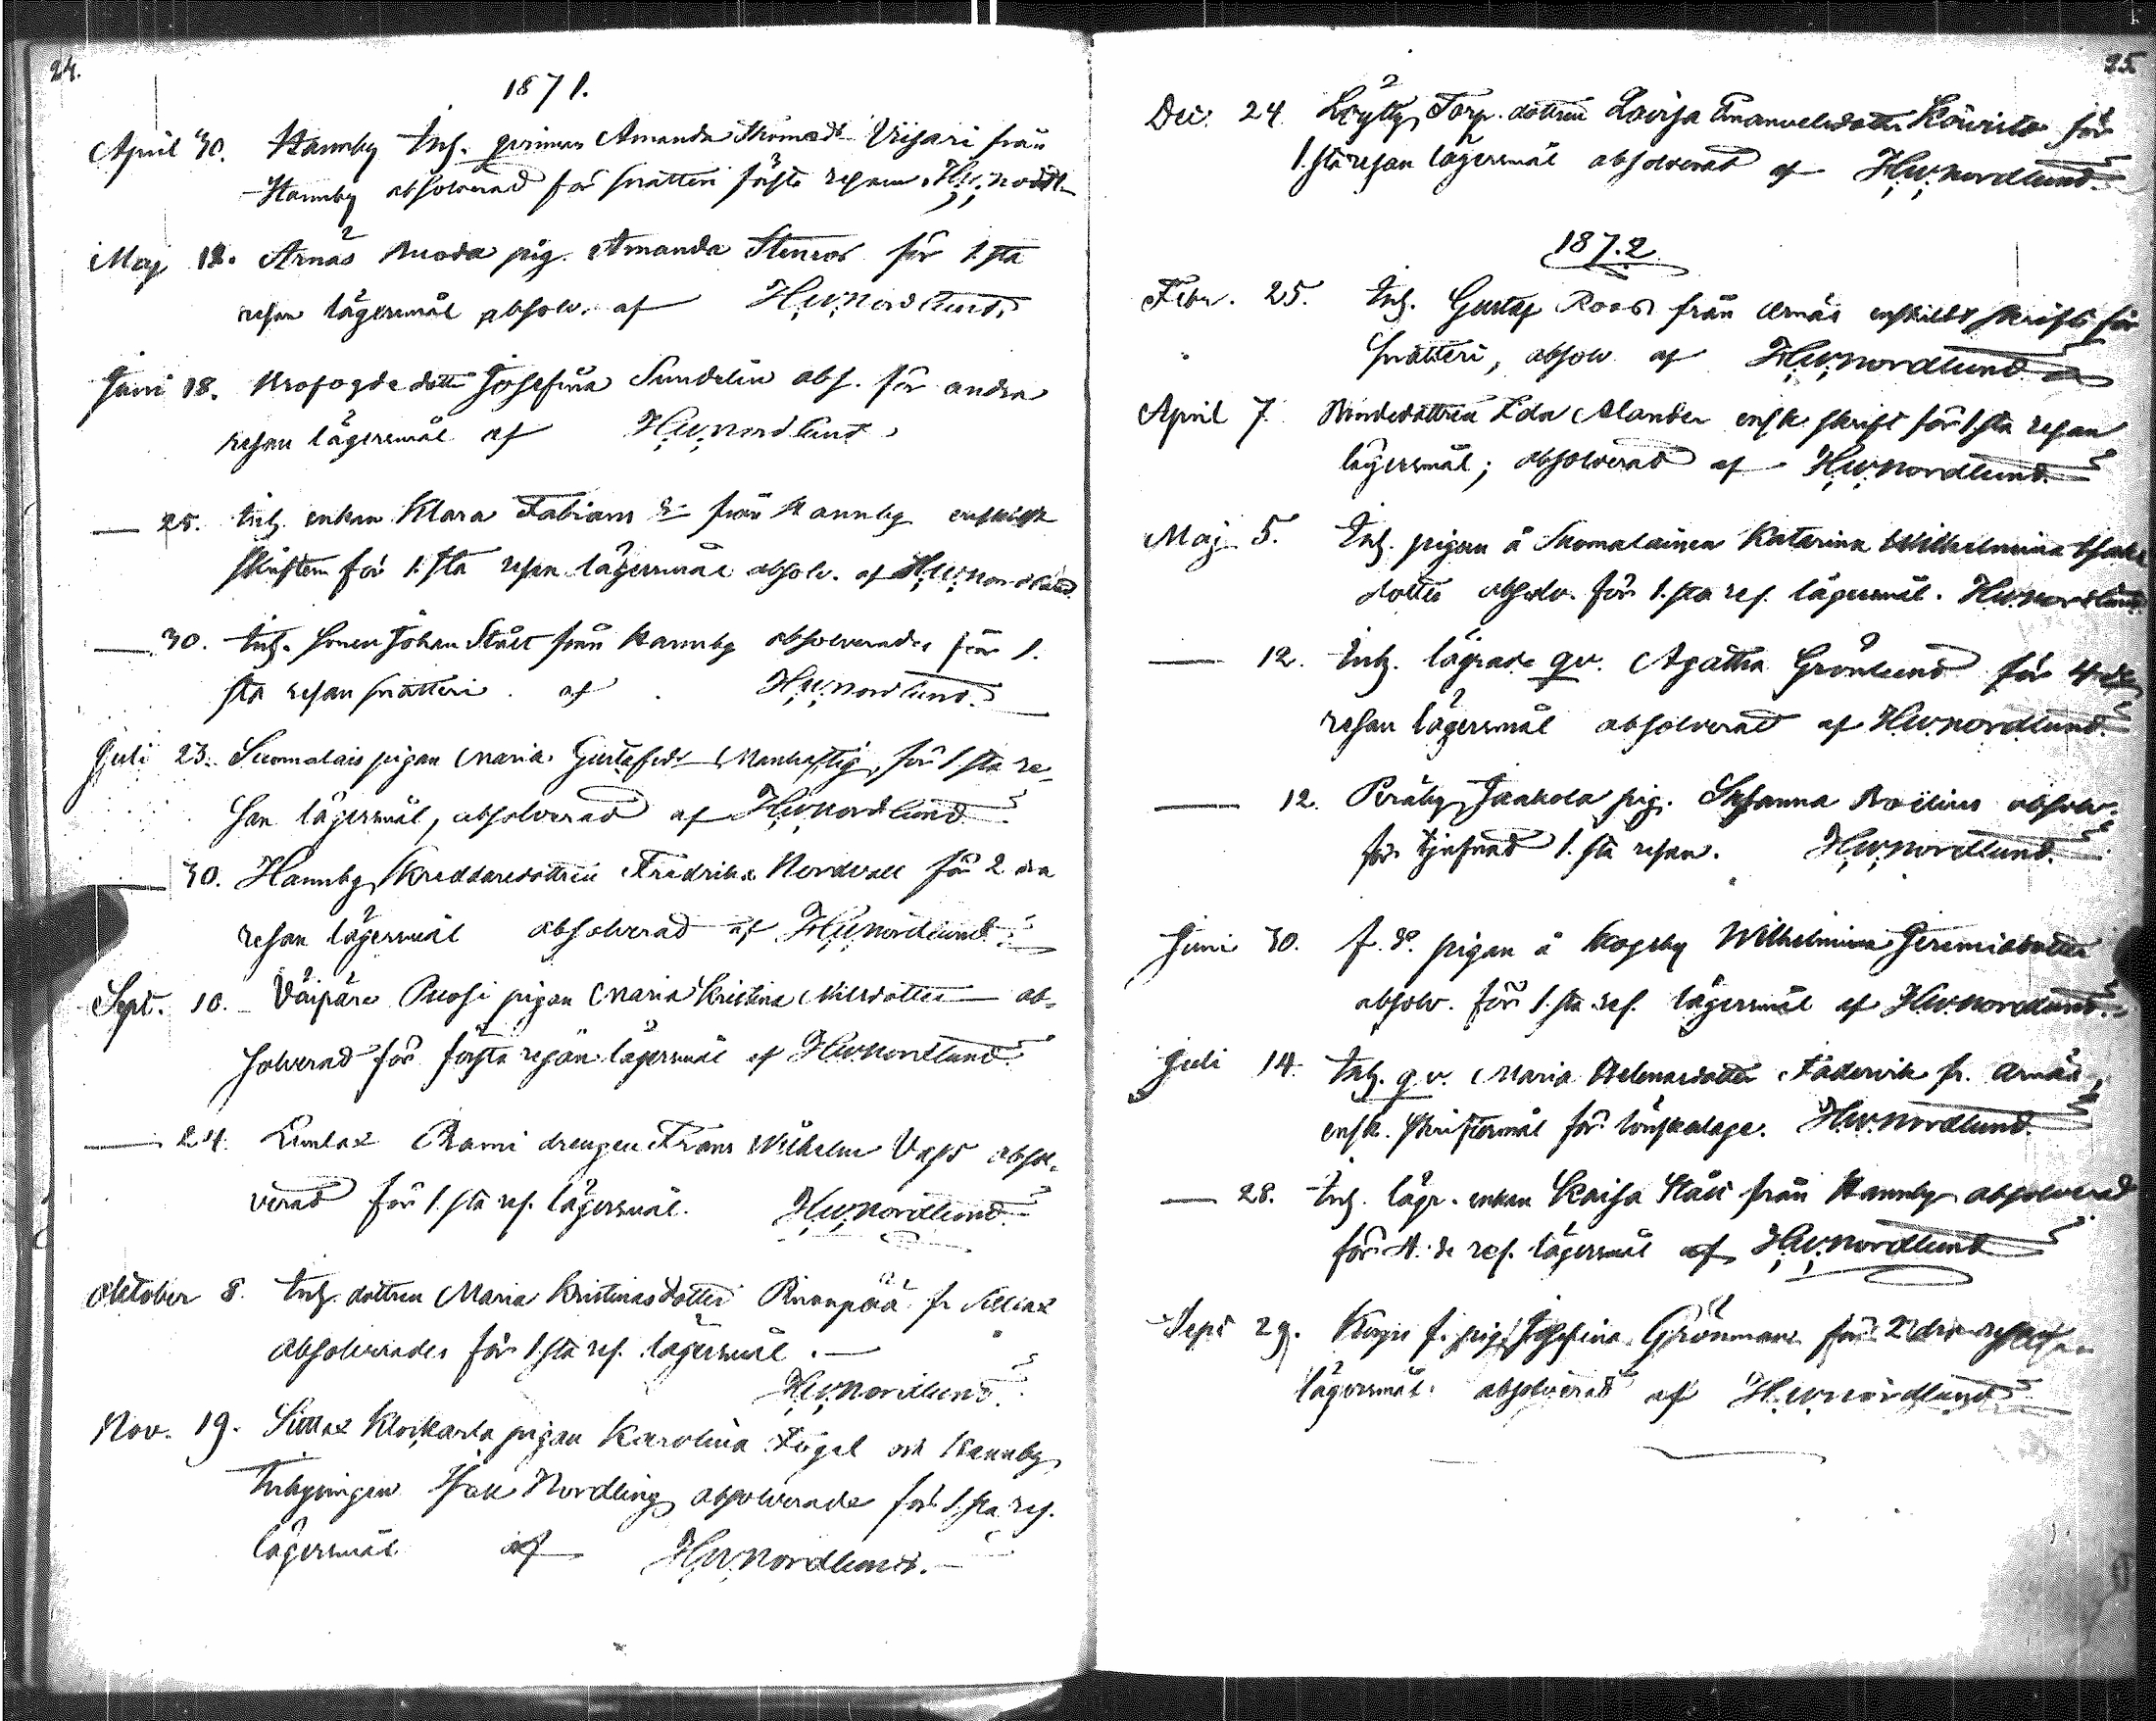 24.
1871.
April 30. Hannby Inh. qvinnan Amanda Thomasd. Viisari från
Hannby absolverad för snatteri första resan. H.W. Nordl.
Maj 12. Arnäs Ruoda pig. Amanda Stenros för 1.sta
resan lägersmål absolv. af H.W. Nordlund.
Juni 18. Brofogde dottr Josefina Sundelin abs. för andra
resan lägersmål af H.W. Nordlund.
— 25. Inh. enkan Klara Fabians d. från Hannby enskildt
skriftem för 1.sta resan lägersmål absolv. af H.W. Nordlund.
— 30. Inh. sonen Johan Stålt från Hannby absolverades för 1.
sta resan snatteri. af H.W. Nordlund.
Juli 23. Suomalais pigan Maria Gustafsdr Manhaftig, för 1.sta re-
san lägersmål, absolverad af H.W. Nordlund
— 30. Hannby Skreddaredottren Fredrika Nordvall för 2 dra
resan lägersmål absolverad af H.W. Nordlund.
Sept. 10. Väipäre Puosi pigan Maria Kristina Nilsdotter ab-
solverad för första resan lägersmål af H.W. Nordlund.
— 24. Limlax Rami drengen Frans Wilhelm absol-
verad för 1.sta res. lägersmål. H.W. Nordlund.
Oktober 8. Inh. dottren Maria Kristinasdotter fr
absolverades för 1.sta res. lägersmål. —
H.W. Nordlund.
Nov. 19. Klockarla pigan Karolina Fogel och Hannby
Inhysingen Isak Nordling absolverade för 1.sta res.
lägersmål af H.W. Nordlund.
25
Dec. 24. Löytty Torp. dottren Lovisa Emanuelsdotter Koivisto för
1.sta resan lägersmål absolverad af H.W. Nordlund.
1872.
Febr. 25. Inh. Gustaf Roos från Arnäs enskildt skrift. för
snatteri, absolv. af H.W. Nordlund
April 7. Bondedottren Eda Alander ensk. skrift för 1.sta resan
lägersmål; absolverad af H.W. Nordlund.
Maj 5. Inh. pigan å Suomalainen Katarina Wilhelmina Isaks
dotter absolv. för 1.sta res. lägersmål. H.W. Nordlund.
— 12. Inh. lägrade qv. Agatha Grönlund för 4.de
resan lägersmål absolverad af H.W. Nordlund.
— 12. Peräby Jaakola pig. Susanna absolv.
för tjufnad 1.sta resan. H.W. Nordlund.
Juni 30. f.d. pigan å Kogsby Wilhelmina Jeremiasdotter
absolv. för 1.sta res. lägersmål af H.W. Nordlund.
Juli 14. Inh. qv. Maria Fädervik fr. Arnäs,
ensk. skriftermål för lönskalage. H.W. Nordlund.
— 28. Inh. lägr. enkan Kaisa Stålt från Hannby absolverad
för 4.de res. lägersmål af H.W. Nordlund
Sept 29. f. pig. Josefina Grönman för 2 dra resan
lägersmål absolverad af H.W. Nordlund